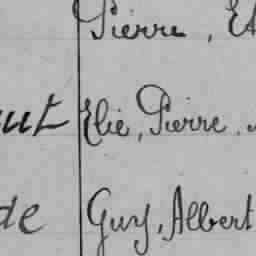 Pierre, Et
ut Elie, Pierre,
de Guy, Albert